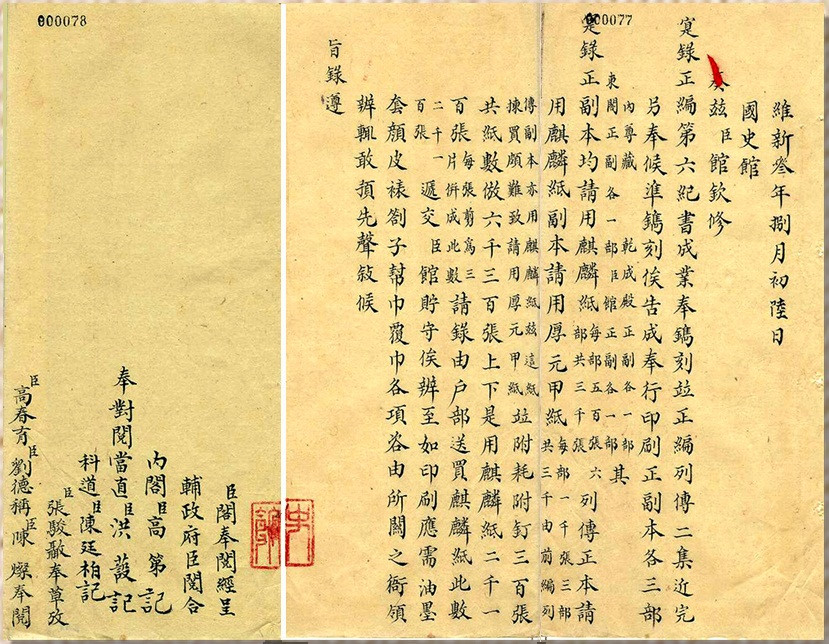 000077
維新叄年捌月初陸日
國史館
奏玆臣館欽修
寔錄正編第六紀書成業奉鐫刻竝正編列傳二集近完
另奉候準鐫刻俟告成奉行印刷正副本各三部
內尊藏 乾成殿正副各一部
東閣正副各一部臣館正副各一部其
寔錄正副本均請用麒麟紙每部五百張六部共三千張列傳正本請
用麒麟紙副本請用厚元甲紙每部一千張三部共三千由前編列
傳副本亦用麒麟紙玆這紙揀買頗難致請用厚元甲紙竝附耗附釘三百張
共紙數倣六千三百張上下是用麒麟紙二千一
百張每張剪為三片併成此數請錄由戶部送買麒麟紙此數
二千一百張遞交臣館貯守俟辦至如印刷應需油墨
套顏皮裱劄子幫巾覆巾各項咨由所關之衙領
辦輒敢預先聲敍候
旨錄遵
000078
臣閣奉閱經呈
輔政府臣閱合
內閣臣高第記
奉對閱當直臣洪蔎記
科道臣陳廷柏記
臣張駿奉草攷
臣高春育臣劉德稱臣陳燦奉閱